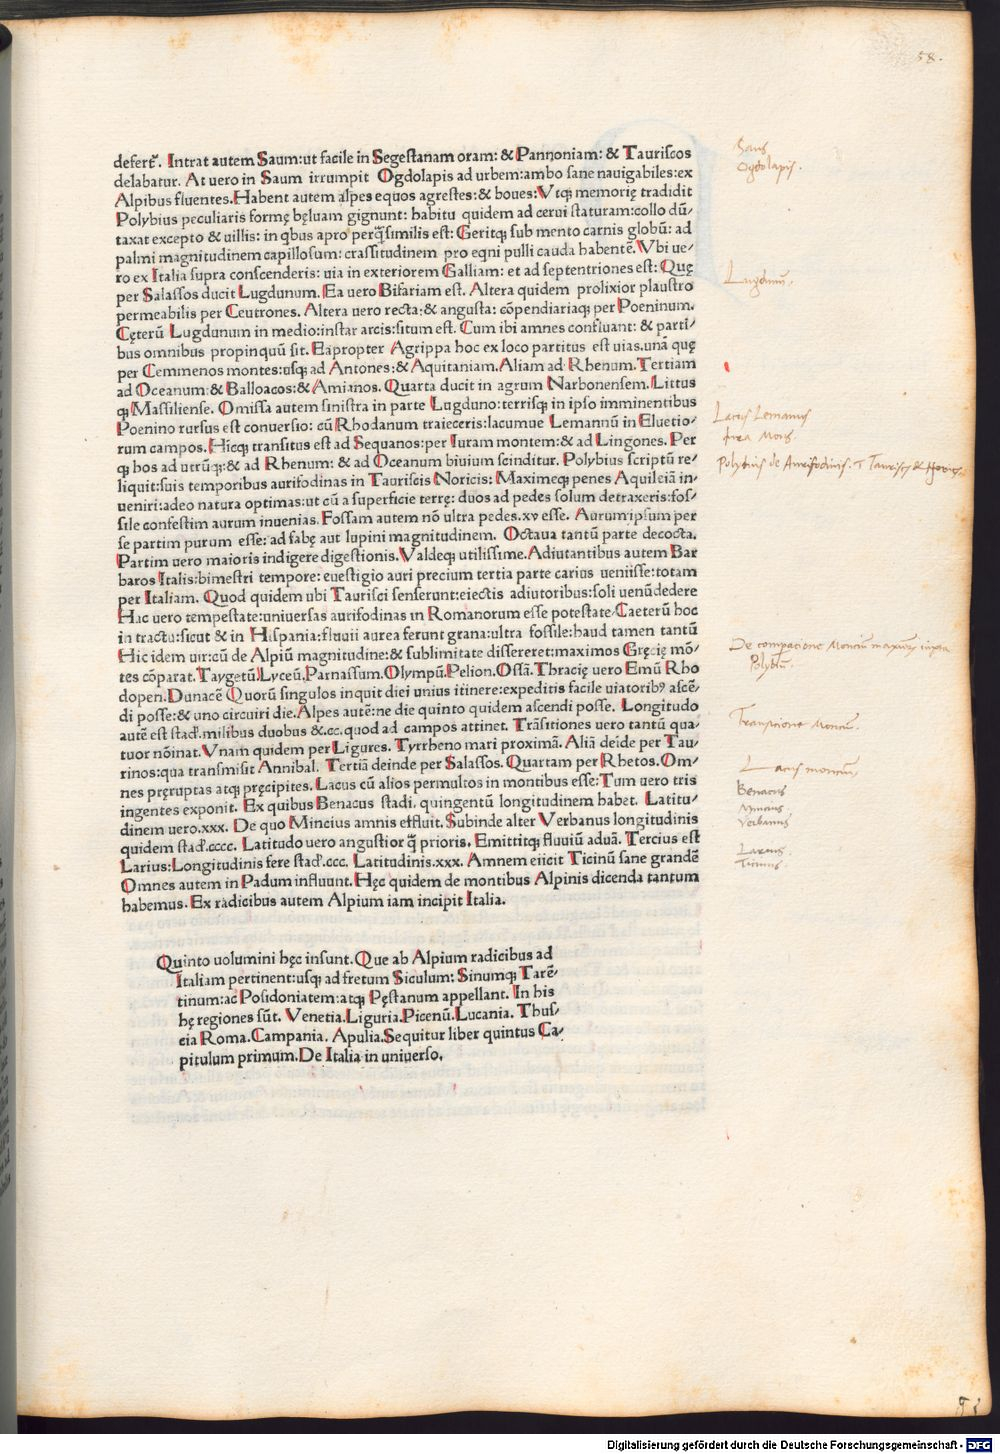 58.
deferť. Intrat autem Saum:ut facile in Segestanam oram: & Pannoniam: & Tauriscos
delabatur. At uero in Saum irrumpit Ogdolapis ad urbem:ambo sane nauigabiles:ex
Alpibus fluentes.Habent autem alpes equos agrestes:& boues:Vtqꝫ memorię tradidit
Polybius peculiaris formę bęluam gignunt: habitu quidem ad cerui staturam:collo dū/
taxat excepto & uillis: in qbus apro perq̄similis est: Geritqꝫ sub mento carnis globū: ad
palmi magnitudinem capillosum: crassitudinem pro eqni pulli cauda habentē.Vbi ue/
ro ex Italia supra conscenderis: uia in exteriorem Galliam: et ad septentriones est: Quę
per Salassos ducit Lugdunum. Ea uero Bifariam est. Altera quidem prolixior plaustro
permeabilis per Ceutrones. Altera uero recta:& angusta: cōpendiariaqꝫ per Poeninum.
Cęterū Lugdunum in medio:instar arcis:situm est. Cum ibi amnes confluant: & parti/
bus omnibus propinquū sit. Eapropter Agrippa hoc ex loco partitus est uias.unā quę
per Cemmenos montes:usqꝫ ad Antones:& Aquitaniam.Aliam ad Rhenum.Tertiam
ad Oceanum:& Balloacos:& Amianos. Quarta ducit in agrum Narbonensem.Littus
qꝫ Massiliense. Omissa autem sinistra in parte Lugduno:terrisqꝫ in ipso imminentibus
Poenino rursus est conuersio: cū Rhodanum traieceris:lacumue Lemannū in Eluetio/
rum campos. Hicqꝫ transitus est ad Sequanos:per Iuram montem:& ad Lingones. Per
qꝫ hos ad utrūqꝫ:& ad Rhenum: & ad Oceanum biuium scinditur. Polybius scriptū re/
liquit:suis temporibus aurifodinas in Tauriscis Noricis: Maximeqꝫ penes Aquileiā in/
ueniri:adeo natura optimas:ut cū a superficie terrę: duos ad pedes solum detraxeris:fos/
sile confestim aurum inuenias. Fossam autem nō ultra pedes.xv esse. Aurum ipsum per
se partim purum esse: ad fabę aut lupini magnitudinem. Octaua tantū parte decocta.
Partim uero maioris indigere digestionis. Valdeqꝫ utilissime.Adiutantibus autem Bar
baros Italis:bimestri tempore: euestigio auri precium tertia parte carius ueniisse:totam
per Italiam. Quod quidem ubi Taurisci senserunt:eiectis adiutoribus:soli uenūdedere
Hac uero tempestate:uniuersas aurifodinas in Romanorum esse potestate/Caeterū hoc
in tractu:sicut & in Hispania:fluuii aurea ferunt grana:ultra fossile:haud tamen tantū
Hic idem uir:cū de Alpiū magnitudine:& sublimitate differeret:maximos Gręcię mō/
tes cōparat. Taygetū Lyceū.Parnassum.Olympū.Pelion.Ossā.Thracię uero Emū Rho
dopen.Dunacē Quorū singulos inquit diei unius itinere:expeditis facile uiatoribꝰ ascē/
di posse:& uno circuiri die.Alpes autē:ne die quinto quidem ascendi posse. Longitudo
autē est stad.milibus duobus &.cc.quod ad campos attinet. Trāsitiones uero tantū qua/
tuor nōinat.Vnam quidem per Ligures. Tyrrheno mari proximā. Aliā deide per Tau/
rinos:qua transmisit Annibal. Tertiā deinde per Salassos. Quartam per Rhetos.Om/
nes pręruptas atqꝫ pręcipites. Lacus cū alios permultos in montibus esse:Tum uero tris
ingentes exponit. Ex quibus Benacus stadi. quingentū longitudinem habet. Latitu/
dinem uero.xxx. De quo Mincius amnis effluit. Subinde alter Verbanus longitudinis
quidem stad.cccc. Latitudo uero angustior q̄ prioris. Emittitqꝫ fluuiū aduā. Tercius est
Larius:Longitudinis fere stad.ccc. Latitudinis.xxx. Amnem eiicit Ticinū sane grandē
Omnes autem in Padum influunt. Hęc quidem de montibus Alpinis dicenda tantum
habemus. Ex radicibus autem Alpium iam incipit Italia.
Quinto uolumini hęc insunt. Que ab Alpium radicibus ad
Italiam pertinent:usqꝫ ad fretum Siculum: Sinumqꝫ Tarē/
tinum:ac Posidoniatem:atqꝫ Pęstanum appellant. In his
hę regiones sūt. Venetia.Liguria.Picenū.Lucania. Thus/
cia Roma.Campania. Apulia.Sequitur liber quintus Ca/
pitulum primum.De Italia in uniuerso.
Saus
Ogdolapis.
Lugdunū.
Lacus Lemanus
Iura Mons.
Polybius de Aurifodinis.
Polybiū.
Transitione Montiū.
Lacus montiū
Benacus
Mincius.
Verbanus
Larius.
Ticinus.
Digitalisierung gefördert durch die Deutsche Forschungsgemeinschaft - DFG